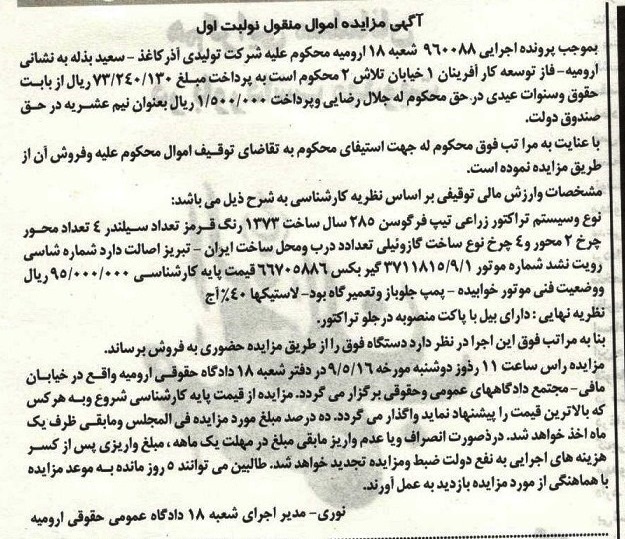 آگهی مزایده اموال منقول نولبت اول
بموجب پرونده اجرایی ۹۶۰۰۸۸ شعبه ۱۸ ارومیه محکوم علیه شرکت تولیدی آذر کاغذ - سعید بذله به نشانی
ارومیه- فاز توسعه کار آفرینان ۱ خیابان تلاش ۲ محکوم است به پرداخت مبلغ ۷۳/۲۴۰/۱۳۰ ریال از بابت
حقوق وسنوات عیدی در حق محکوم له جلال رضایی وپرداخت ۱/۵۰۰/۰۰۰ ریال بعنوان نیم عشریه در حق
صندوق دولت.
با عنایت به مرا تب فوق محکوم له جهت استیفای محکوم به تقاضای توقیف اموال محکوم علیه وفروش آن از
طریق مزایده نموده است.
مشخصات وارزش مالی توقیفی بر اساس نظریه کارشناسی به شرح ذیل می باشد:
نوع وسیستم تراکتور زراعی تیپ فرگوسن ۲۸۵ سال ساخت ۱۳۷۳ رنگ قرمز تعداد سیلندر ۴ تعداد محور
چرخ ۲ محور و۴ چرخ نوع ساخت گازوئیلی تعدادد درب ومحل ساخت ایران - تبریز اصالت دارد شماره شاسی
رویت نشد شماره موتور ۳۷۱۱۸۱۵/۹/۱ گیر بکس ۶۶۷۰۵۸۸۶ قیمت پایه کارشناسی ۹۵/۰۰۰/۰۰۰ ریال
ووضعیت فنی موتور خوابیده - پمپ جلوباز وتعمیرگاه بود- لاستیکها ۴۰٪ آج
نظریه نهایی : دارای بیل با پاکت منصوبه در جلو تراکتور.
بنا به مراتب فوق این اجرا در نظر دارد دستگاه فوق را از طریق مزایده حضوری به فروش برساند.
مزایده راس ساعت ۱۱ رذوز دوشنبه مورخه ۹/۵/۱۶ در دفتر شعبه ۱۸ دادگاه حقوقی ارومیه واقع در خیابان
مافی- مجتمع دادگاههای عمومی وحقوقی برگزار می گردد. مزایده از قیمت پایه کارشناسی شروع وبه هرکس
که بالاترین قیمت را پیشنهاد نماید واگذار می گردد. ده درصد مبلغ مورد مزایده فی المجلس ومابقی ظرف یک
ماه اخذ خواهد شد. درذصورت انصراف ویا عدم واریز مابقی مبلغ در مهلت یک ماهه ، مبلغ واریزی پس از کسر
هزینه های اجرایی به نفع دولت ضبط ومزایده تجدید خواهد شد. طالبین می توانند ۵ روز مانده به موعد مزایده
با هماهنگی از مورد مزایده بازدید به عمل آورند.
نوری- مدیر اجرای شعبه ۱۸ دادگاه عمومی حقوقی ارومیه